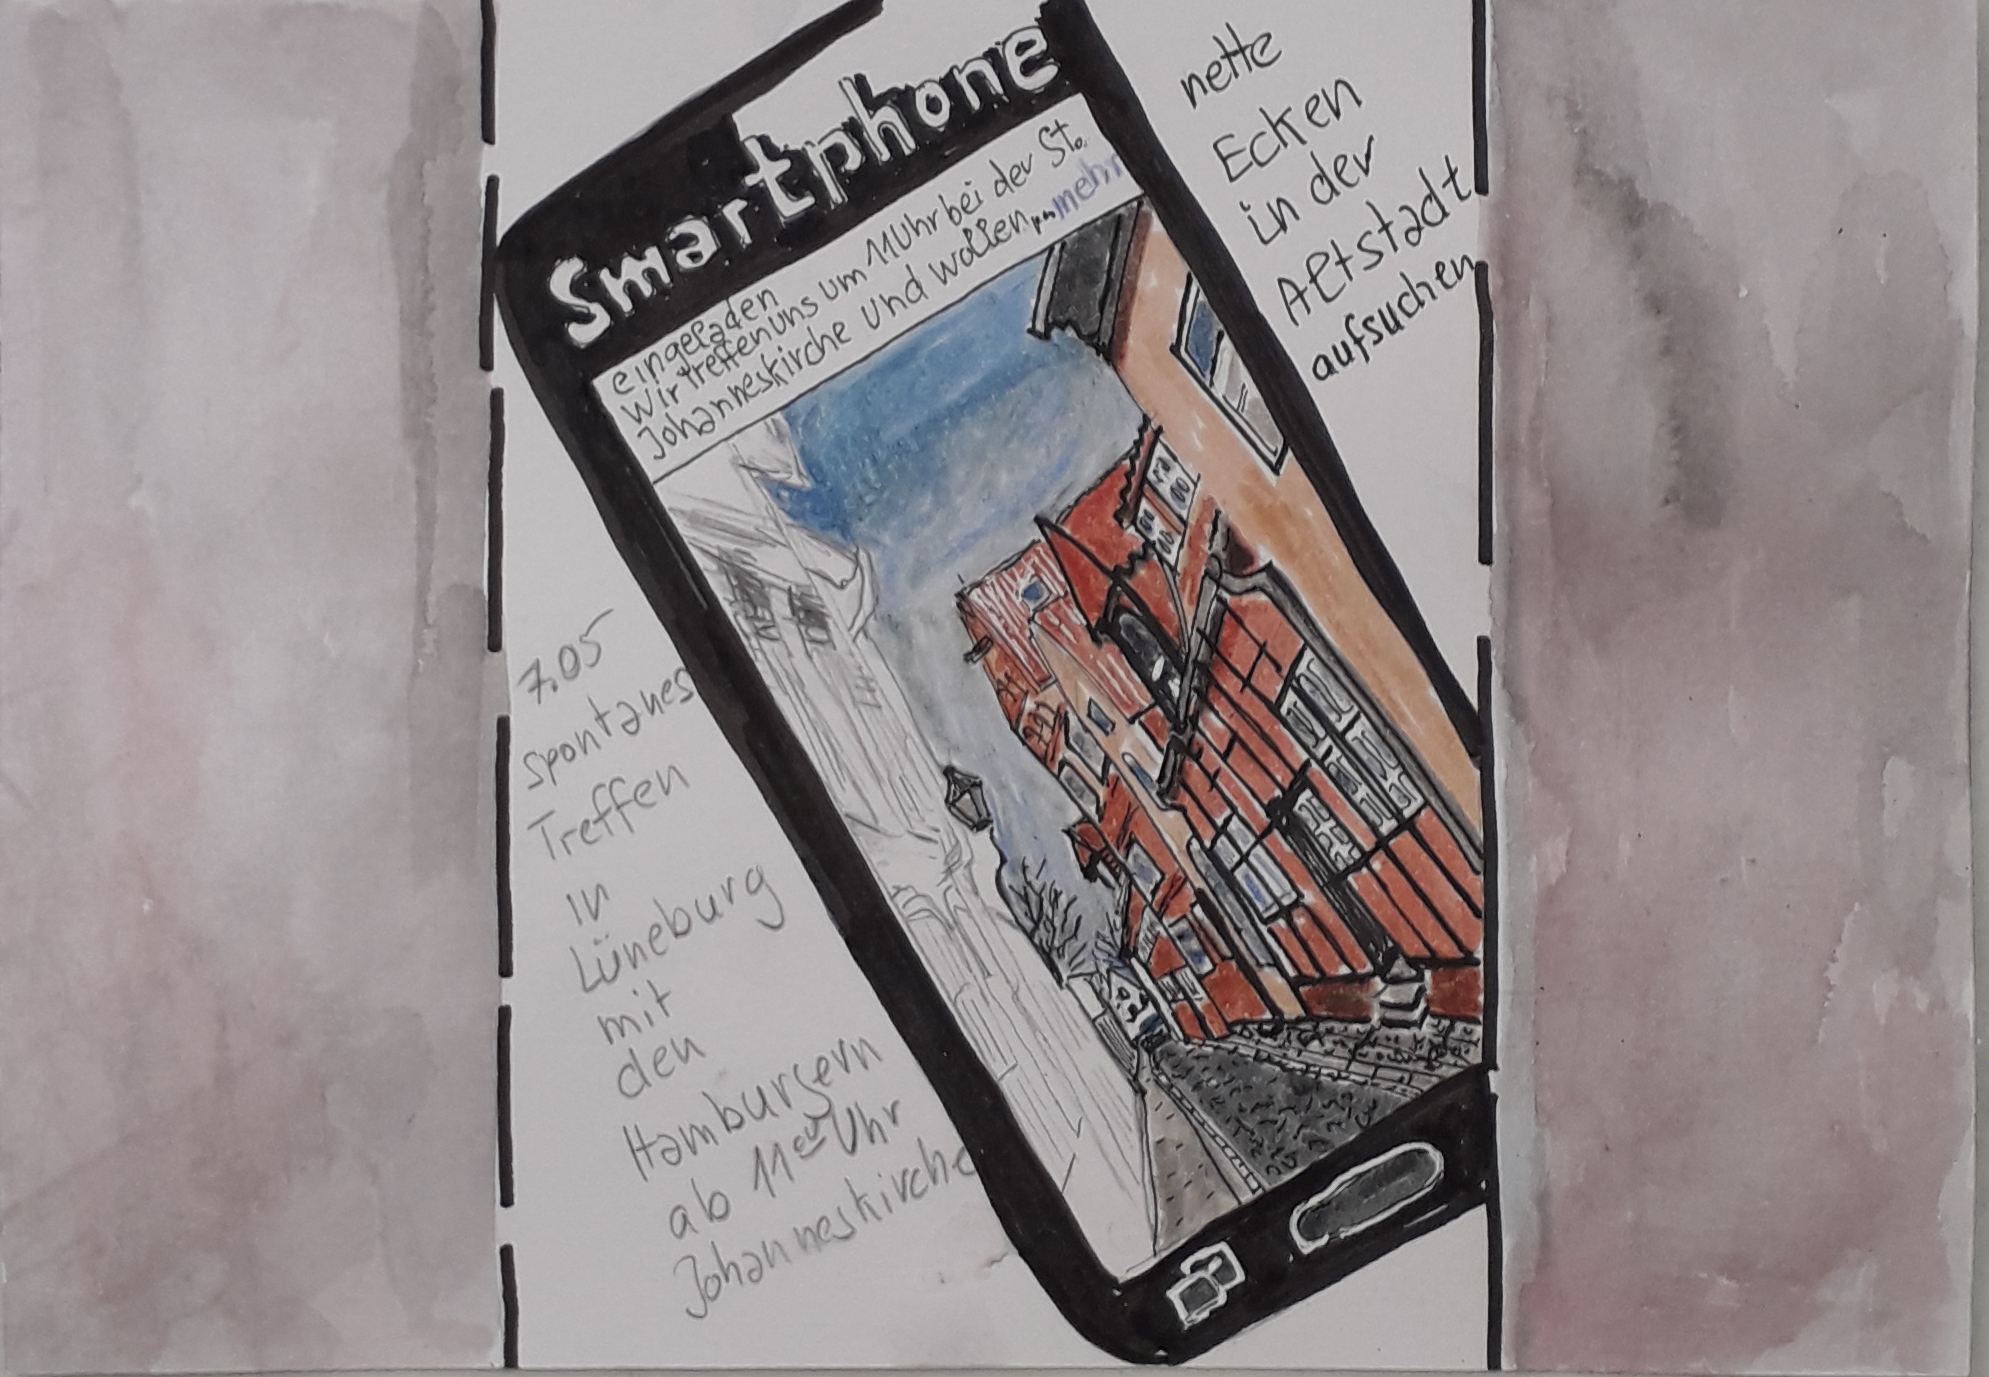 Smartphone
eingeladen
Wir treffen uns um 11 Uhr bei der St.
Johanneskirche und wollen ... mehr
nette
Ecken
in der
Altstadt
aufsuchen
7.05
spontanes
Treffen
in
Lüneburg
mit
den
Hamburgern
ab 11 Uhr
Johanneskirche